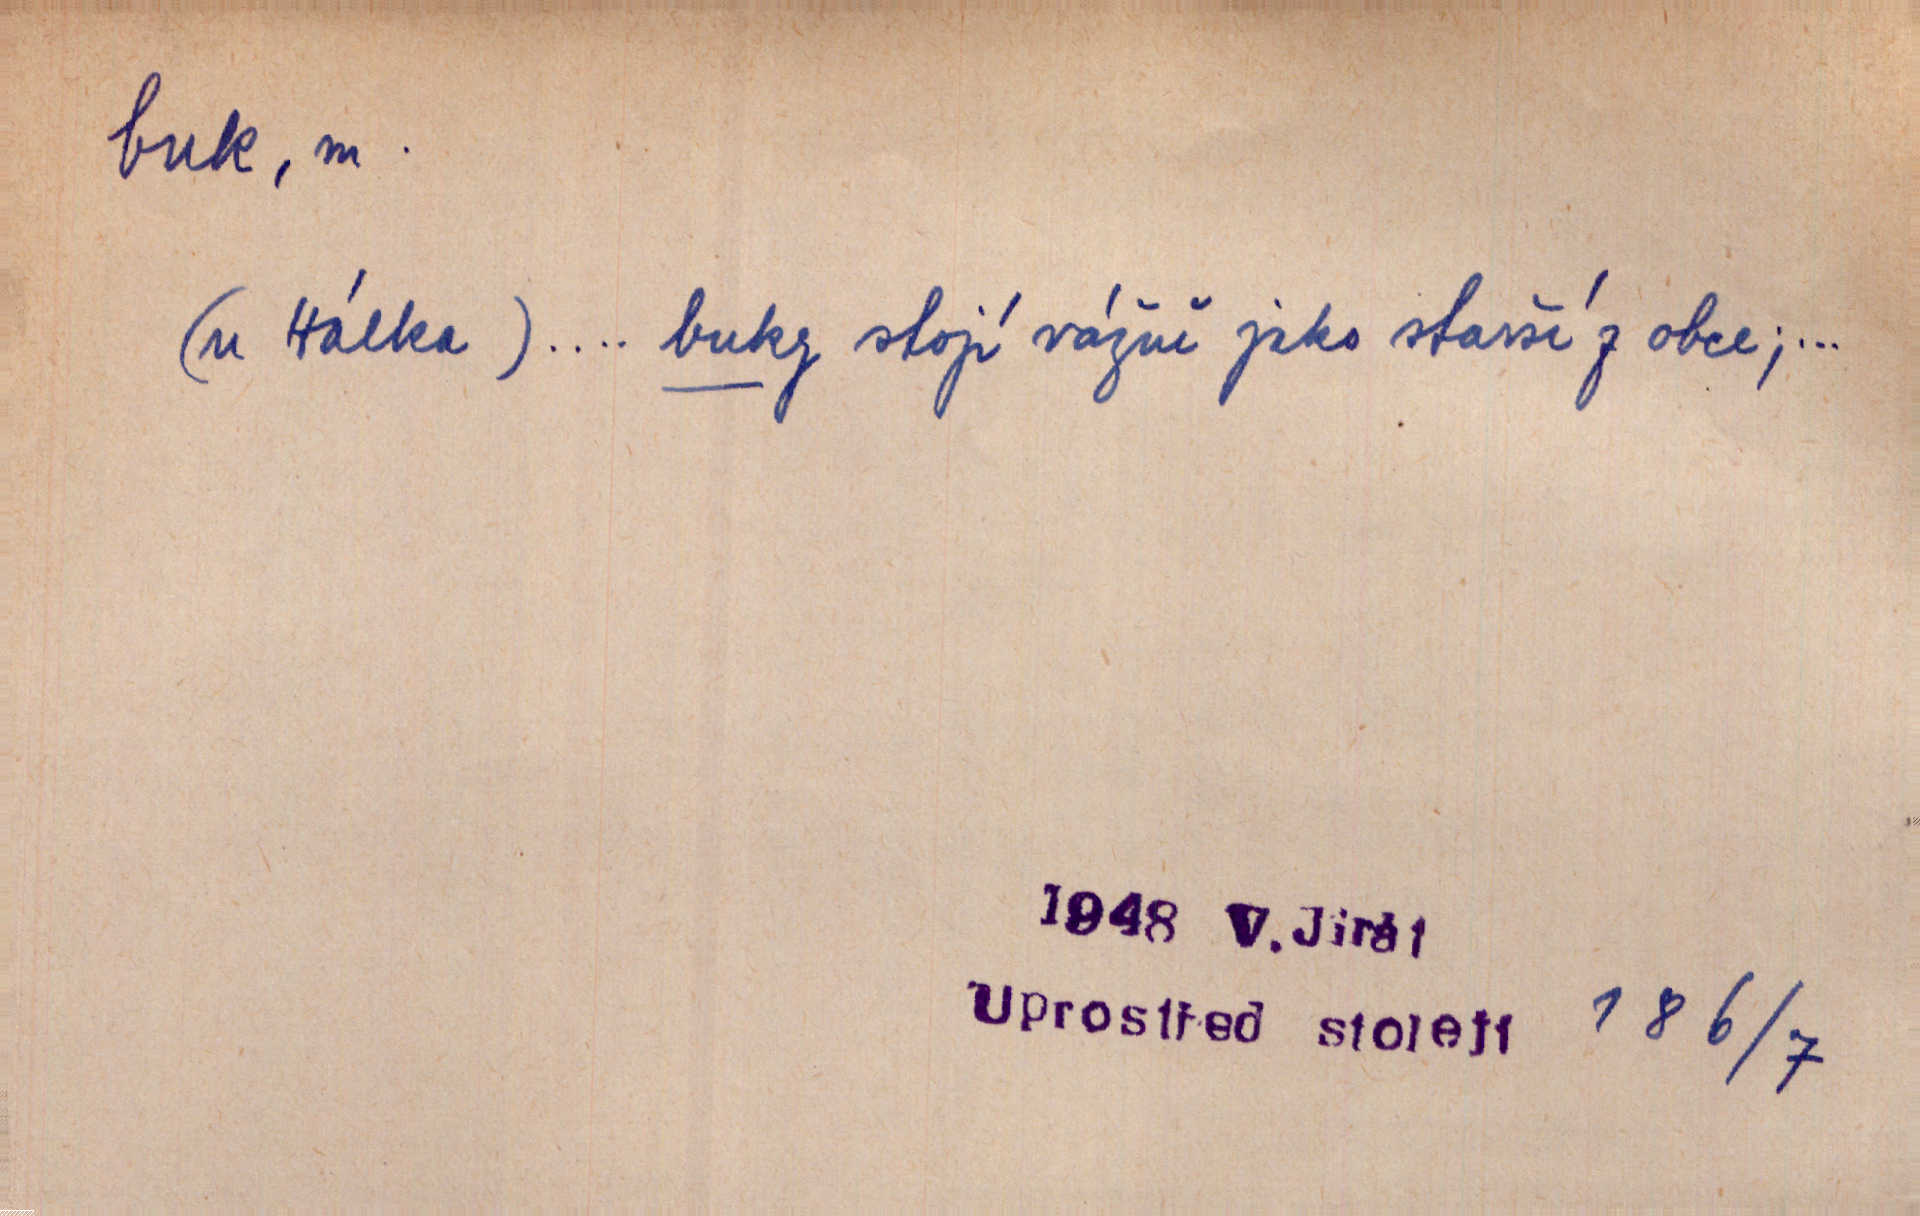 buk, m.
(u Hálka).... buky stojí vážně jako starší z obce;...
1948 V. Jirát
Uprostřed století 186/7